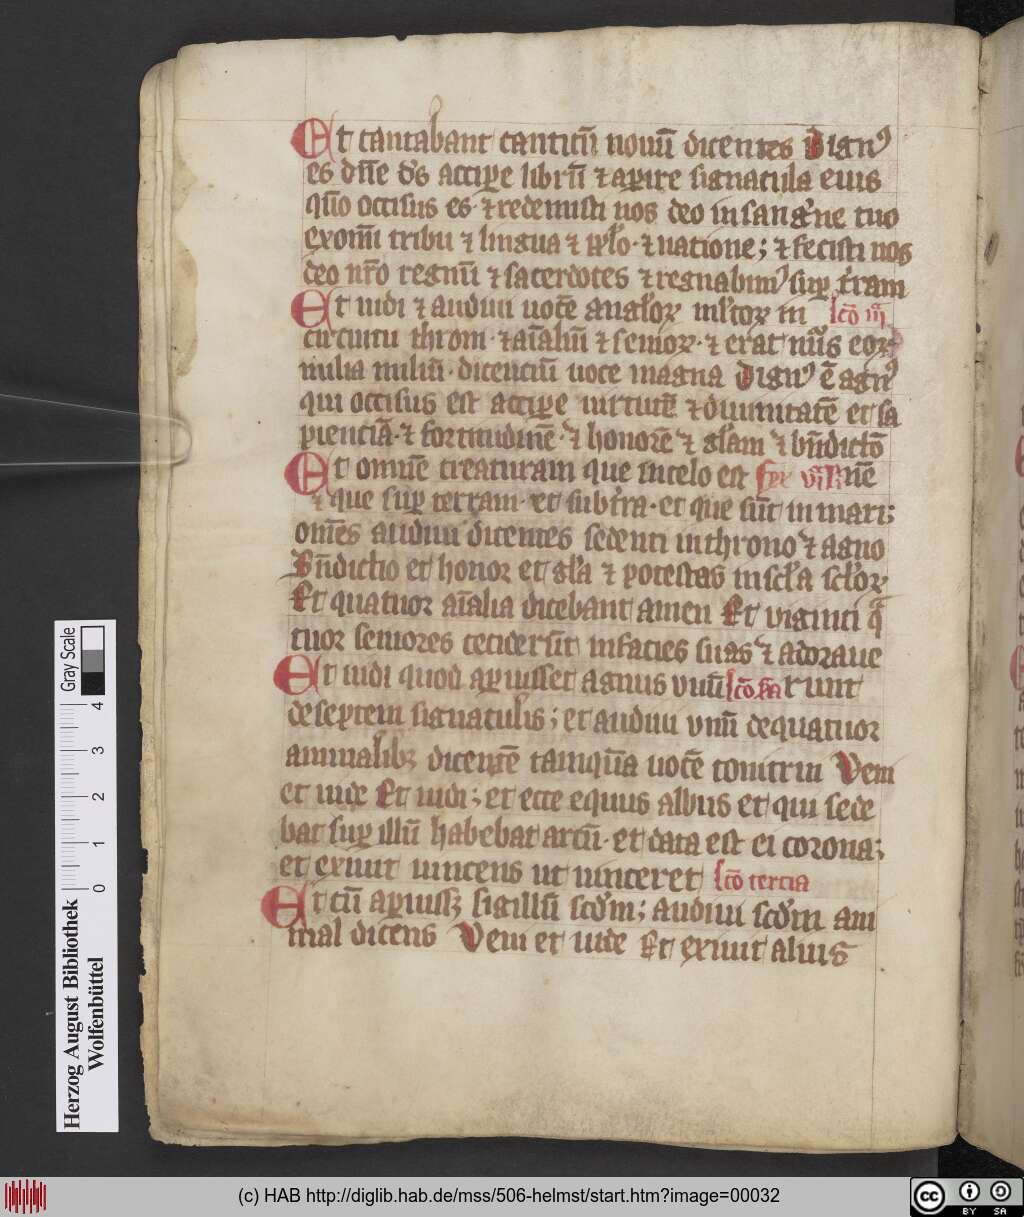 Et cantabant canticū nouū dicentes Dignꝰ
es dn̄e ds̄ accipe librū ⁊ aꝑire signacula eius
qm̄ occisus es · ⁊ redemisti nos deo in sangⁱne tuo
ex om̄i tribu ⁊ lingua ⁊ pplo · ⁊ natione ; ⁊ fecisti nos
deo nr̄o regnū ⁊ sacerdotes ⁊ regnabimꝰ suꝑ t̄ram
Et uidi ⁊ audiui uocē anglorꝝ mltorꝝ in
circuitu throni · ⁊ aīaliū ⁊ seniorꝝ · ⁊ erat nūus eorꝝ
milia miliū · dicenciū uoce magna Dignꝰ ē agnꝰ
qui occisus est accipe uirtutē ⁊ diuinitatē et sa
pienciā · ⁊ fortitudinē · ⁊ honorē ⁊ glam ⁊ bn̄dictō
Et omnē creaturam que in celo est nē
⁊ que suꝑ terram · et sub t̄ra · et que sūt in mari ;
om̄es audiui dicentes sedenti in throno ⁊ agno
Bn̄dictio et honor et gla ⁊ potestas in scl̄a scl̄orꝝ
Et quatuor aīalia dicebant amen Et viginti qͣ
tuor seniores ceciderūt in facies suas ⁊ adoraue
Et uidi quod aꝑuisset agnus vnū runt
de septem signaculis ; et audiui vnū de quatuor
animalibꝫ dicentē tamquā uocē tonitrui Veni
et uide Et uidi ; et ecce equus albus et qui sede
bat suꝑ illū habebat arcū · et data est ei corona ;
et exiuit uincens ut uinceret scō tercia
Et cū aꝑuissꝫ sigillū scdm ; audiui scdm ani
mal dicens Veni et uide Et exiuit alius
Gray Scale
0 1 2 3 4
Herzog August Bibliothek
Wolfenbüttel
(c) HAB http://diglib.hab.de/mss/506-helmst/start.htm?image=00032
cc BY SA